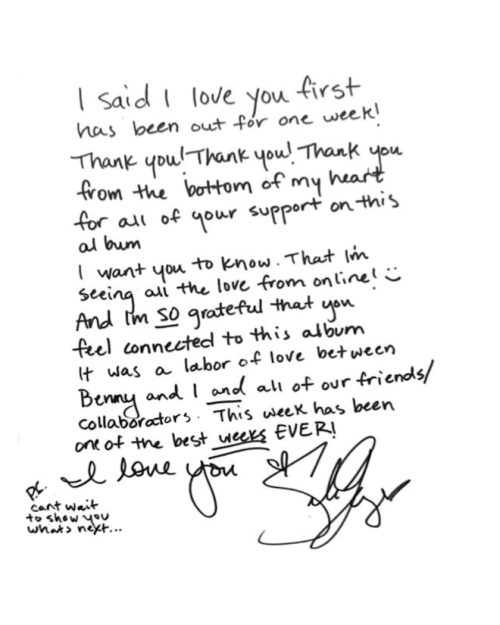 I said I love you first
has been out for one week!
Thank you! Thank you! Thank you
from the bottom of my heart
for all of your support on this
album
I want you to know. That Im
seeing all the love from online! :)
And I'm SO grateful that you
feel connected to this album
It was a labor of love between
Benny and I and all of our friends/
collaborators. This week has been
one of the best weeks EVER!
I love you
P.S.
cant wait
to show you
whats next...